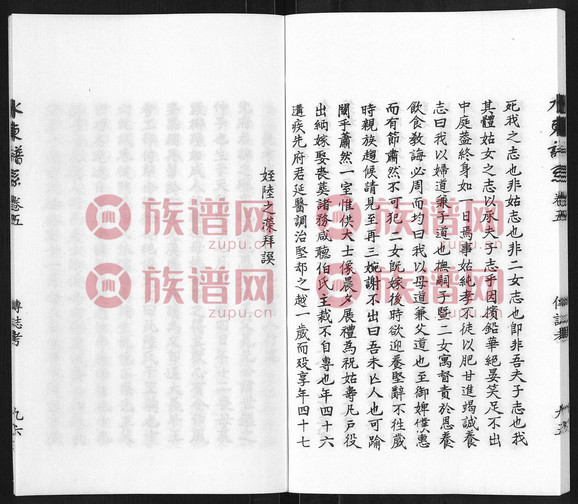 死我之志也非姑志也非二女志也即非吾夫子志也我
其體姑女之志以承夫子志乎因擯鉛華絕晏笑足不出
中庭蓋終身如一日焉事姑純孝不徒以肥甘進竭誠養
志曰我以婦道兼子道也撫嗣子曁二女寓督責於恩養
飲食教誨必周而均曰我以母道兼父道也至御婢僕惠
而有節肅然不可犯二女旣嫁後時欲迎養堅辭不徃歲
時親族趨候請見至再三婉謝不出曰吾未亾人也可踰
閫乎蕭然一室惟供大士像晨夕展禮為祝姑壽凡戸役
出納嫁娶喪葬諸務咸聽伯氏主裁不自專也年四十六
遘疾先府君延醫調治堅郤之越一歲而歿享年四十七
姪陸之深拜譔
水東譜系
卷五
傳誌考
九六
卷五
族谱网
zupu.cn
族谱网
zupu.cn
族谱网
zupu.cn
族谱网
zupu.cn